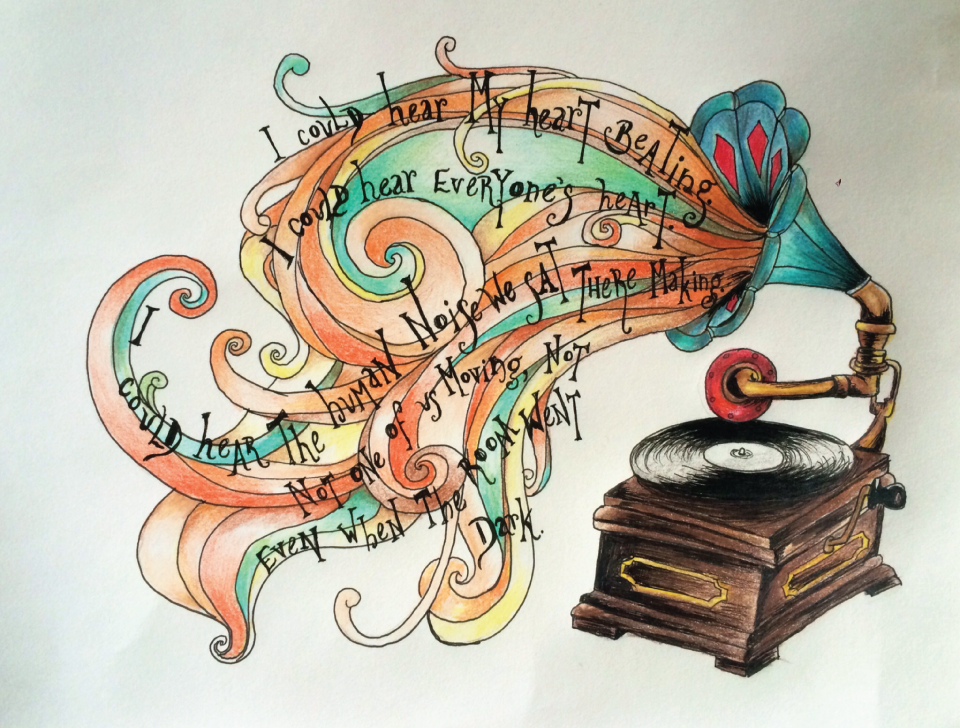 I could hear My heart Beating.
I could hear Everyone's heart.
I could hear The human Noise we sat There Making,
Not one of us Moving, Not
Even When The Room Went
Dark.